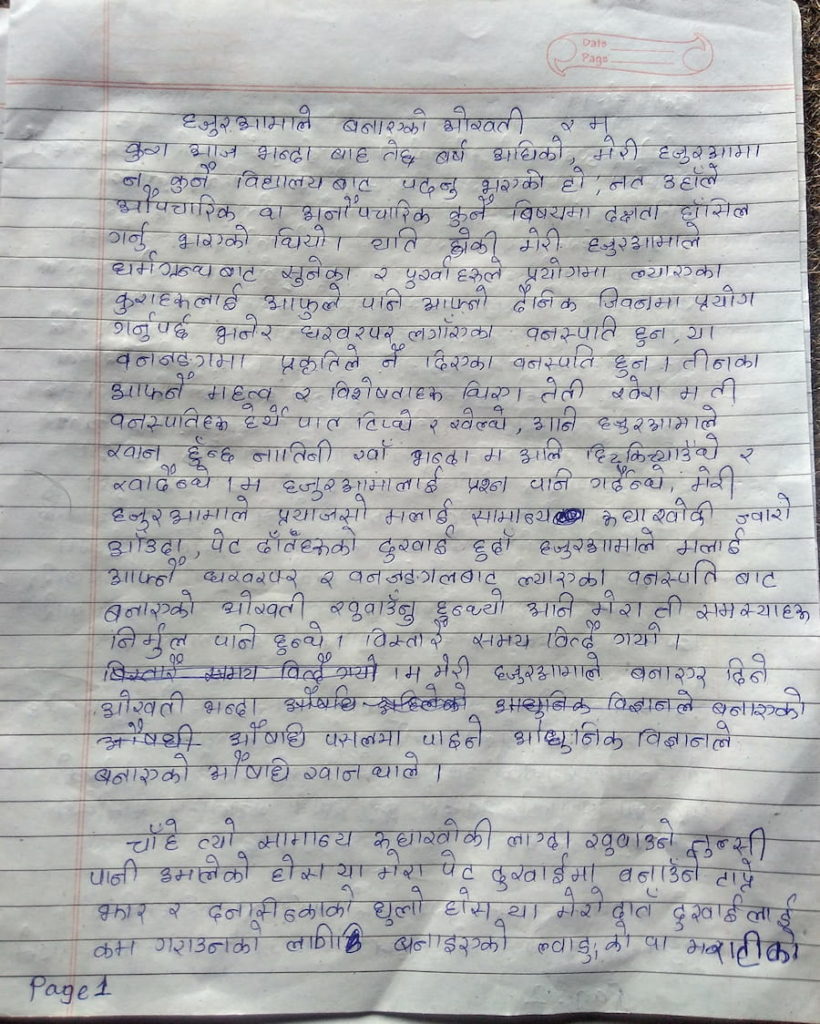 Date
Page
हजुरआमाले बनाएको ओखती र म
कुरा आज भन्दा बाह्र तेह्र वर्ष अघिको, मेरी हजुरआमा
न कुनै विद्यालय बाट पढ्नु भएको हो, नत उहाँले
औपचारिक वा अनौपचारिक कुनै बिषयमा दक्षता हाँसिल
गर्नु भएको थियो। यति होकी मेरी हजुरआमाले
धर्मग्रन्थ बाट सुनेका र पुर्खाहरूले प्रयोगमा ल्याएका
कुराहरूलाई आफुले पनि आफ्नो दैनिक जिवनमा प्रयोग
गर्नुपर्छ भनेर घरवरपर लगाएका वनस्पति हुन, या
वनजङ्गमा प्रकृतिले नै दिएका वनस्पति हुन। तीनका
आफ्नै महत्व र विशेषताहरू थिए। तेती खेरा म ती
वनस्पतिहरू हेर्थे पात टिप्थे र खेल्थे, अनि हजुरआमाले
खान हुँन्छ नातिनी खाँ भन्दा म अलि हिच्किच्याउँथे र
खादैन्थे। म हजुरआमालाई प्रश्न पनि गर्दैन्थे, मेरी
हजुरआमाले प्रयाजसो मलाई सामान्य रूघाखोकी ज्वारो
आँउदा, पेट दाँतहरूको दुखाई हुदाँ हजुरआमाले मलाई
आफ्नै घरवरपर र वनजङगलबाट ल्याएका वनस्पति बाट
बनाएको ओखती खुवाउँनु हुन्थ्यो अनि मेरा ती समस्याहरू
निर्मुल पनि हुन्थे। विस्तारै समय वित्दै गयो।
बिस्तारै समय वित्दै गयो। म मेरी हजुरआमाले बनाएर दिने
ओखती भन्दा औषधि अहिलेको आधुनिक विज्ञानले बनाएको
औषधी औषधि पसलमा पाइने आधुनिक विज्ञानले
बनाएको औषधि खान थाले।
चाँहे त्यो सामान्य रूघाखोकी लाग्दा खुवाउने तुल्सी
पानी उमालेको होस या मेरा पेट दुखाईमा बनाउँने ताप्रे
झार र को धुलो होस या मेरो दाँत दुखाईलाई
कम गराउनको लागि बनाइएको ल्वाङ्को वा मराटीको
Page 1